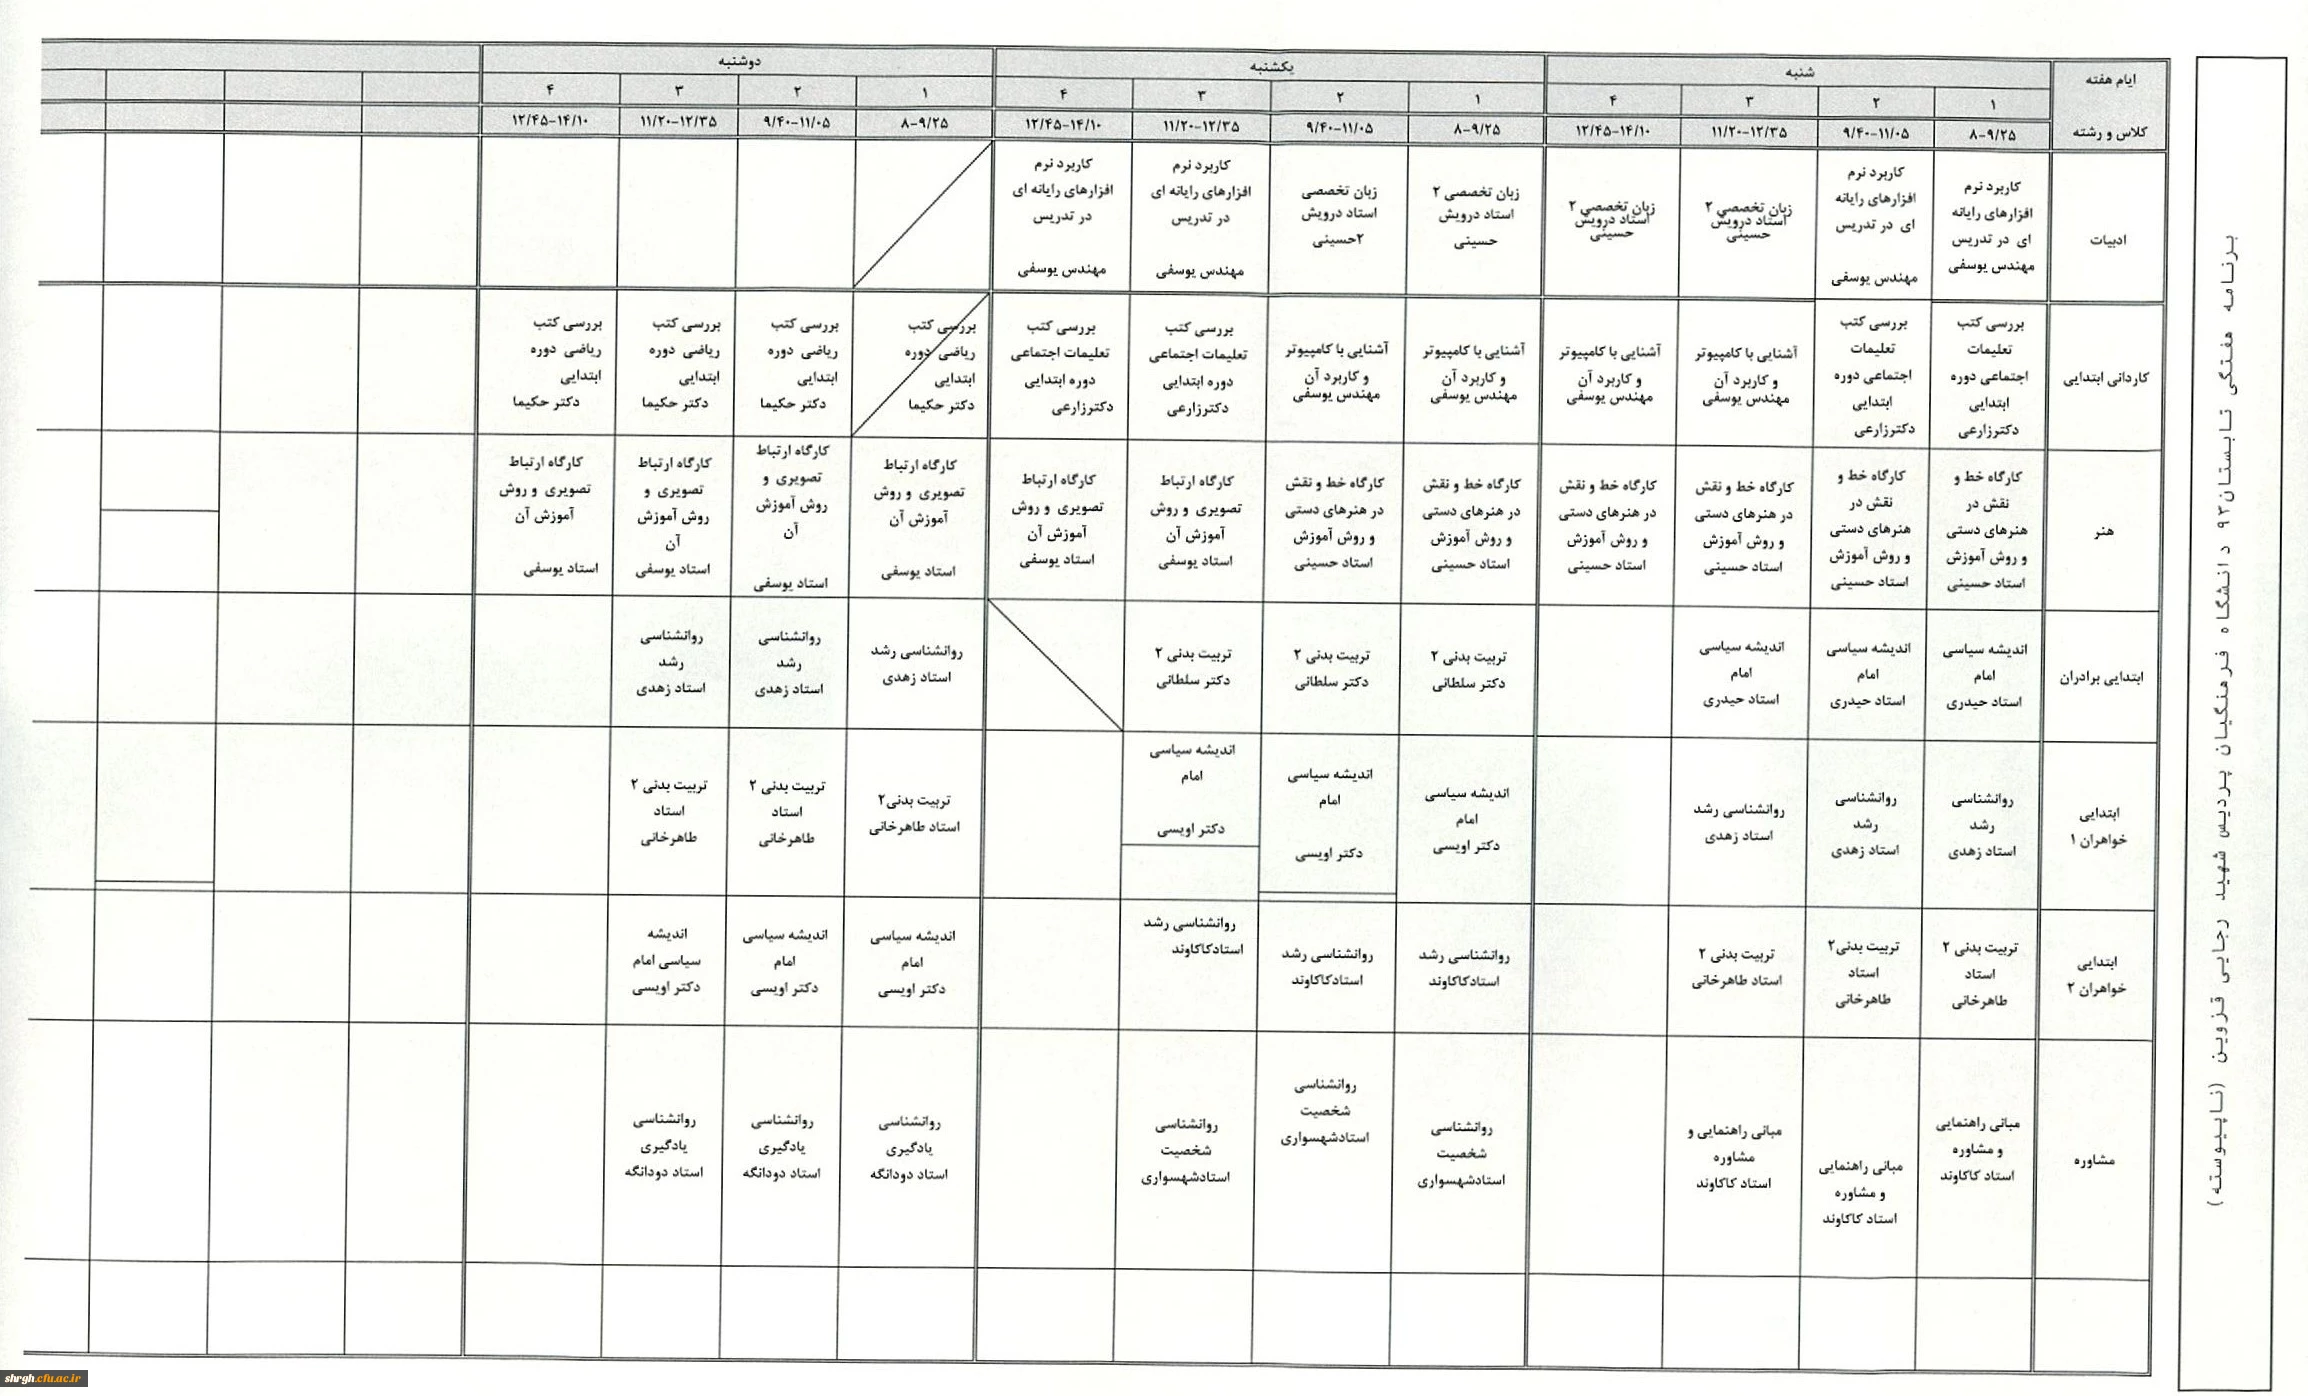 برنامه هفتگی تابستان۹۳ دانشگاه فرهنگیان پردیس شهید رجایی قزوین (ناپیوسته)
ایام هفته
کلاس و رشته
شنبه
یکشنبه
دوشنبه
۱ ۲ ۳ ۴ ۱ ۲ ۳ ۴ ۱ ۲ ۳ ۴
۸-۹/۲۵ ۹/۴۰-۱۱/۰۵ ۱۱/۲۰-۱۲/۳۵ ۱۲/۴۵-۱۴/۱۰ ۸-۹/۲۵ ۹/۴۰-۱۱/۰۵ ۱۱/۲۰-۱۲/۳۵ ۱۲/۴۵-۱۴/۱۰ ۸-۹/۲۵ ۹/۴۰-۱۱/۰۵ ۱۱/۲۰-۱۲/۳۵ ۱۲/۴۵-۱۴/۱۰
ادبیات
کاربرد نرم
افزارهای رایانه
ای در تدریس
مهندس یوسفی
کاربرد نرم
افزارهای رایانه
ای در تدریس
مهندس یوسفی
زبان تخصصی ۲
استاد درویش
حسینی
زبان تخصصی ۲
استاد درویش
حسینی
زبان تخصصی ۲
استاد درویش
حسینی
زبان تخصصی
استاد درویش
۲حسینی
کاربرد نرم
افزارهای رایانه ای
در تدریس
مهندس یوسفی
کاربرد نرم
افزارهای رایانه ای
در تدریس
مهندس یوسفی
کاردانی ابتدایی
بررسی کتب
تعلیمات
اجتماعی دوره
ابتدایی
دکترزارعی
بررسی کتب
تعلیمات
اجتماعی دوره
ابتدایی
دکترزارعی
آشنایی با کامپیوتر
و کاربرد آن
مهندس یوسفی
آشنایی با کامپیوتر
و کاربرد آن
مهندس یوسفی
آشنایی با کامپیوتر
و کاربرد آن
مهندس یوسفی
آشنایی با کامپیوتر
و کاربرد آن
مهندس یوسفی
بررسی کتب
تعلیمات اجتماعی
دوره ابتدایی
دکترزارعی
بررسی کتب
تعلیمات اجتماعی
دوره ابتدایی
دکترزارعی
بررسی کتب
ریاضی دوره
ابتدایی
دکتر حکیما
بررسی کتب
ریاضی دوره
ابتدایی
دکتر حکیما
بررسی کتب
ریاضی دوره
ابتدایی
دکتر حکیما
بررسی کتب
ریاضی دوره
ابتدایی
دکتر حکیما
هنر
کارگاه خط و
نقش در
هنرهای دستی
و روش آموزش
استاد حسینی
کارگاه خط و
نقش در
هنرهای دستی
و روش آموزش
استاد حسینی
کارگاه خط و نقش
در هنرهای دستی
و روش آموزش
استاد حسینی
کارگاه خط و نقش
در هنرهای دستی
و روش آموزش
استاد حسینی
کارگاه خط و نقش
در هنرهای دستی
و روش آموزش
استاد حسینی
کارگاه خط و نقش
در هنرهای دستی
و روش آموزش
استاد حسینی
کارگاه ارتباط
تصویری و روش
آموزش آن
استاد یوسفی
کارگاه ارتباط
تصویری و روش
آموزش آن
استاد یوسفی
کارگاه ارتباط
تصویری و روش
آموزش آن
استاد یوسفی
کارگاه ارتباط
تصویری و
روش آموزش
آن
استاد یوسفی
کارگاه ارتباط
تصویری و
روش آموزش
آن
استاد یوسفی
کارگاه ارتباط
تصویری و روش
آموزش آن
استاد یوسفی
ابتدایی برادران
اندیشه سیاسی
امام
استاد حیدری
اندیشه سیاسی
امام
استاد حیدری
اندیشه سیاسی
امام
استاد حیدری
تربیت بدنی ۲
دکتر سلطانی
تربیت بدنی ۲
دکتر سلطانی
تربیت بدنی ۲
دکتر سلطانی
روانشناسی رشد
استاد زهدی
روانشناسی
رشد
استاد زهدی
روانشناسی
رشد
استاد زهدی
ابتدایی
خواهران ۱
روانشناسی
رشد
استاد زهدی
روانشناسی
رشد
استاد زهدی
روانشناسی رشد
استاد زهدی
اندیشه سیاسی
امام
دکتر اویسی
اندیشه سیاسی
امام
دکتر اویسی
اندیشه سیاسی
امام
دکتر اویسی
تربیت بدنی۲
استاد طاهرخانی
تربیت بدنی ۲
استاد
طاهرخانی
تربیت بدنی ۲
استاد
طاهرخانی
ابتدایی
خواهران ۲
تربیت بدنی ۲
استاد
طاهرخانی
تربیت بدنی۲
استاد
طاهرخانی
تربیت بدنی ۲
استاد طاهرخانی
روانشناسی رشد
استادکاکاوند
روانشناسی رشد
استادکاکاوند
روانشناسی رشد
استادکاکاوند
اندیشه سیاسی
امام
دکتر اویسی
اندیشه سیاسی
امام
دکتر اویسی
اندیشه
سیاسی امام
دکتر اویسی
مشاوره
مبانی راهنمایی
و مشاوره
استاد کاکاوند
مبانی راهنمایی
و مشاوره
استاد کاکاوند
مبانی راهنمایی و
مشاوره
استاد کاکاوند
روانشناسی
شخصیت
استادشهسواری
روانشناسی
شخصیت
استادشهسواری
روانشناسی
شخصیت
استادشهسواری
روانشناسی
یادگیری
استاد دودانگه
روانشناسی
یادگیری
استاد دودانگه
روانشناسی
یادگیری
استاد دودانگه
shrgh.cfu.ac.ir